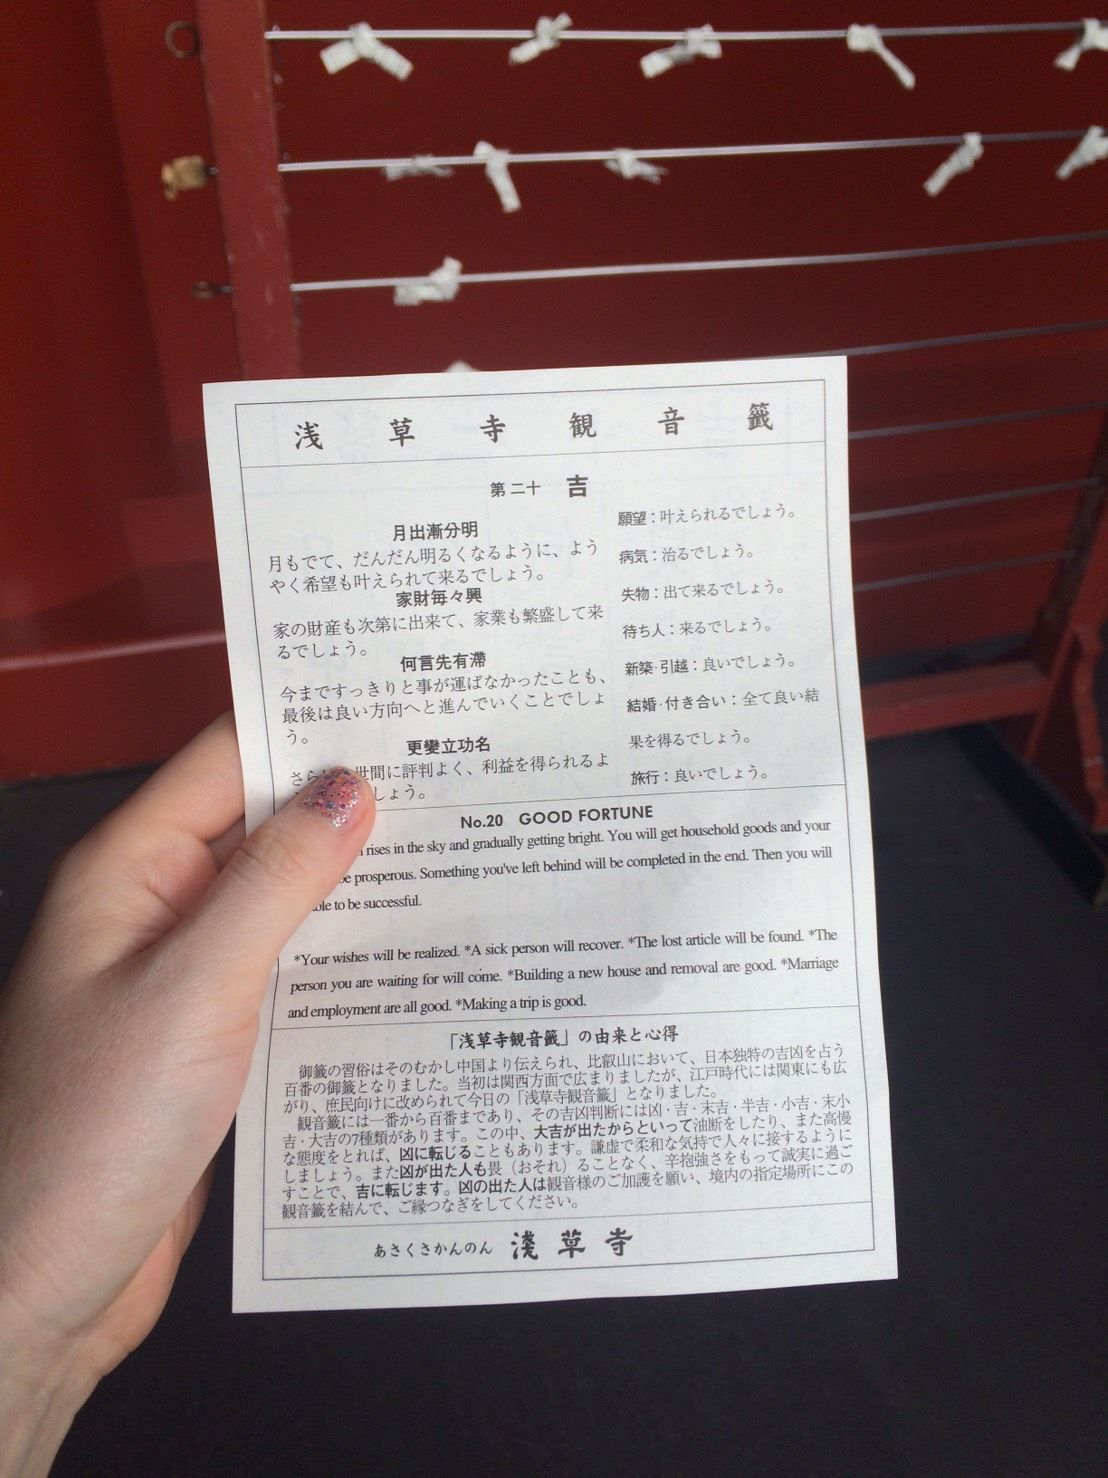 浅草寺観音籤
第二十 吉
月出漸分明
月もでて、だんだん明るくなるように、よう
やく希望も叶えられて来るでしょう。
家財毎々興
家の財産も次第に出来て、家業も繁盛して来
るでしょう。
何言先有滞
今まですっきりと事が運ばなかったことも、
最後は良い方向へと進んでいくことでしょ
う。
更變立功名
さら 世間に評判よく、利益を得られるよ
しょう。
願望：叶えられるでしょう。
病気：治るでしょう。
失物：出て来るでしょう。
待ち人：来るでしょう。
新築・引越：良いでしょう。
結婚・付き合い：全て良い結
果を得るでしょう。
旅行：良いでしょう。
No.20 GOOD FORTUNE
rises in the sky and gradually getting bright. You will get household goods and your
be prosperous. Something you've left behind will be completed in the end. Then you will
to be successful.
*Your wishes will be realized. *A sick person will recover. *The lost article will be found. *The
person you are waiting for will come. *Building a new house and removal are good. *Marriage
and employment are all good. *Making a trip is good.
「浅草寺観音籤」の由来と心得
御籤の習俗はそのむかし中国より伝えられ、比叡山において、日本独特の吉凶を占う
百番の御籤となりました。当初は関西方面で広まりましたが、江戸時代には関東にも広
がり、庶民向けに改められて今日の「浅草寺観音籤」となりました。
観音籤には一番から百番まであり、その吉凶判断には凶・吉・末吉・半吉・小吉・末小
吉・大吉の7種類があります。この中、大吉が出たからといって油断をしたり、また高慢
な態度をとれば、凶に転じることもあります。謙虚で柔和な気持で人々に接するように
しましょう。また凶が出た人も畏（おそれ）ることなく、辛抱強さをもって誠実に過ご
すことで、吉に転じます。凶の出た人は観音様のご加護を願い、境内の指定場所にこの
観音籤を結んで、ご縁つなぎをしてください。
あさくさかんのん 淺草寺